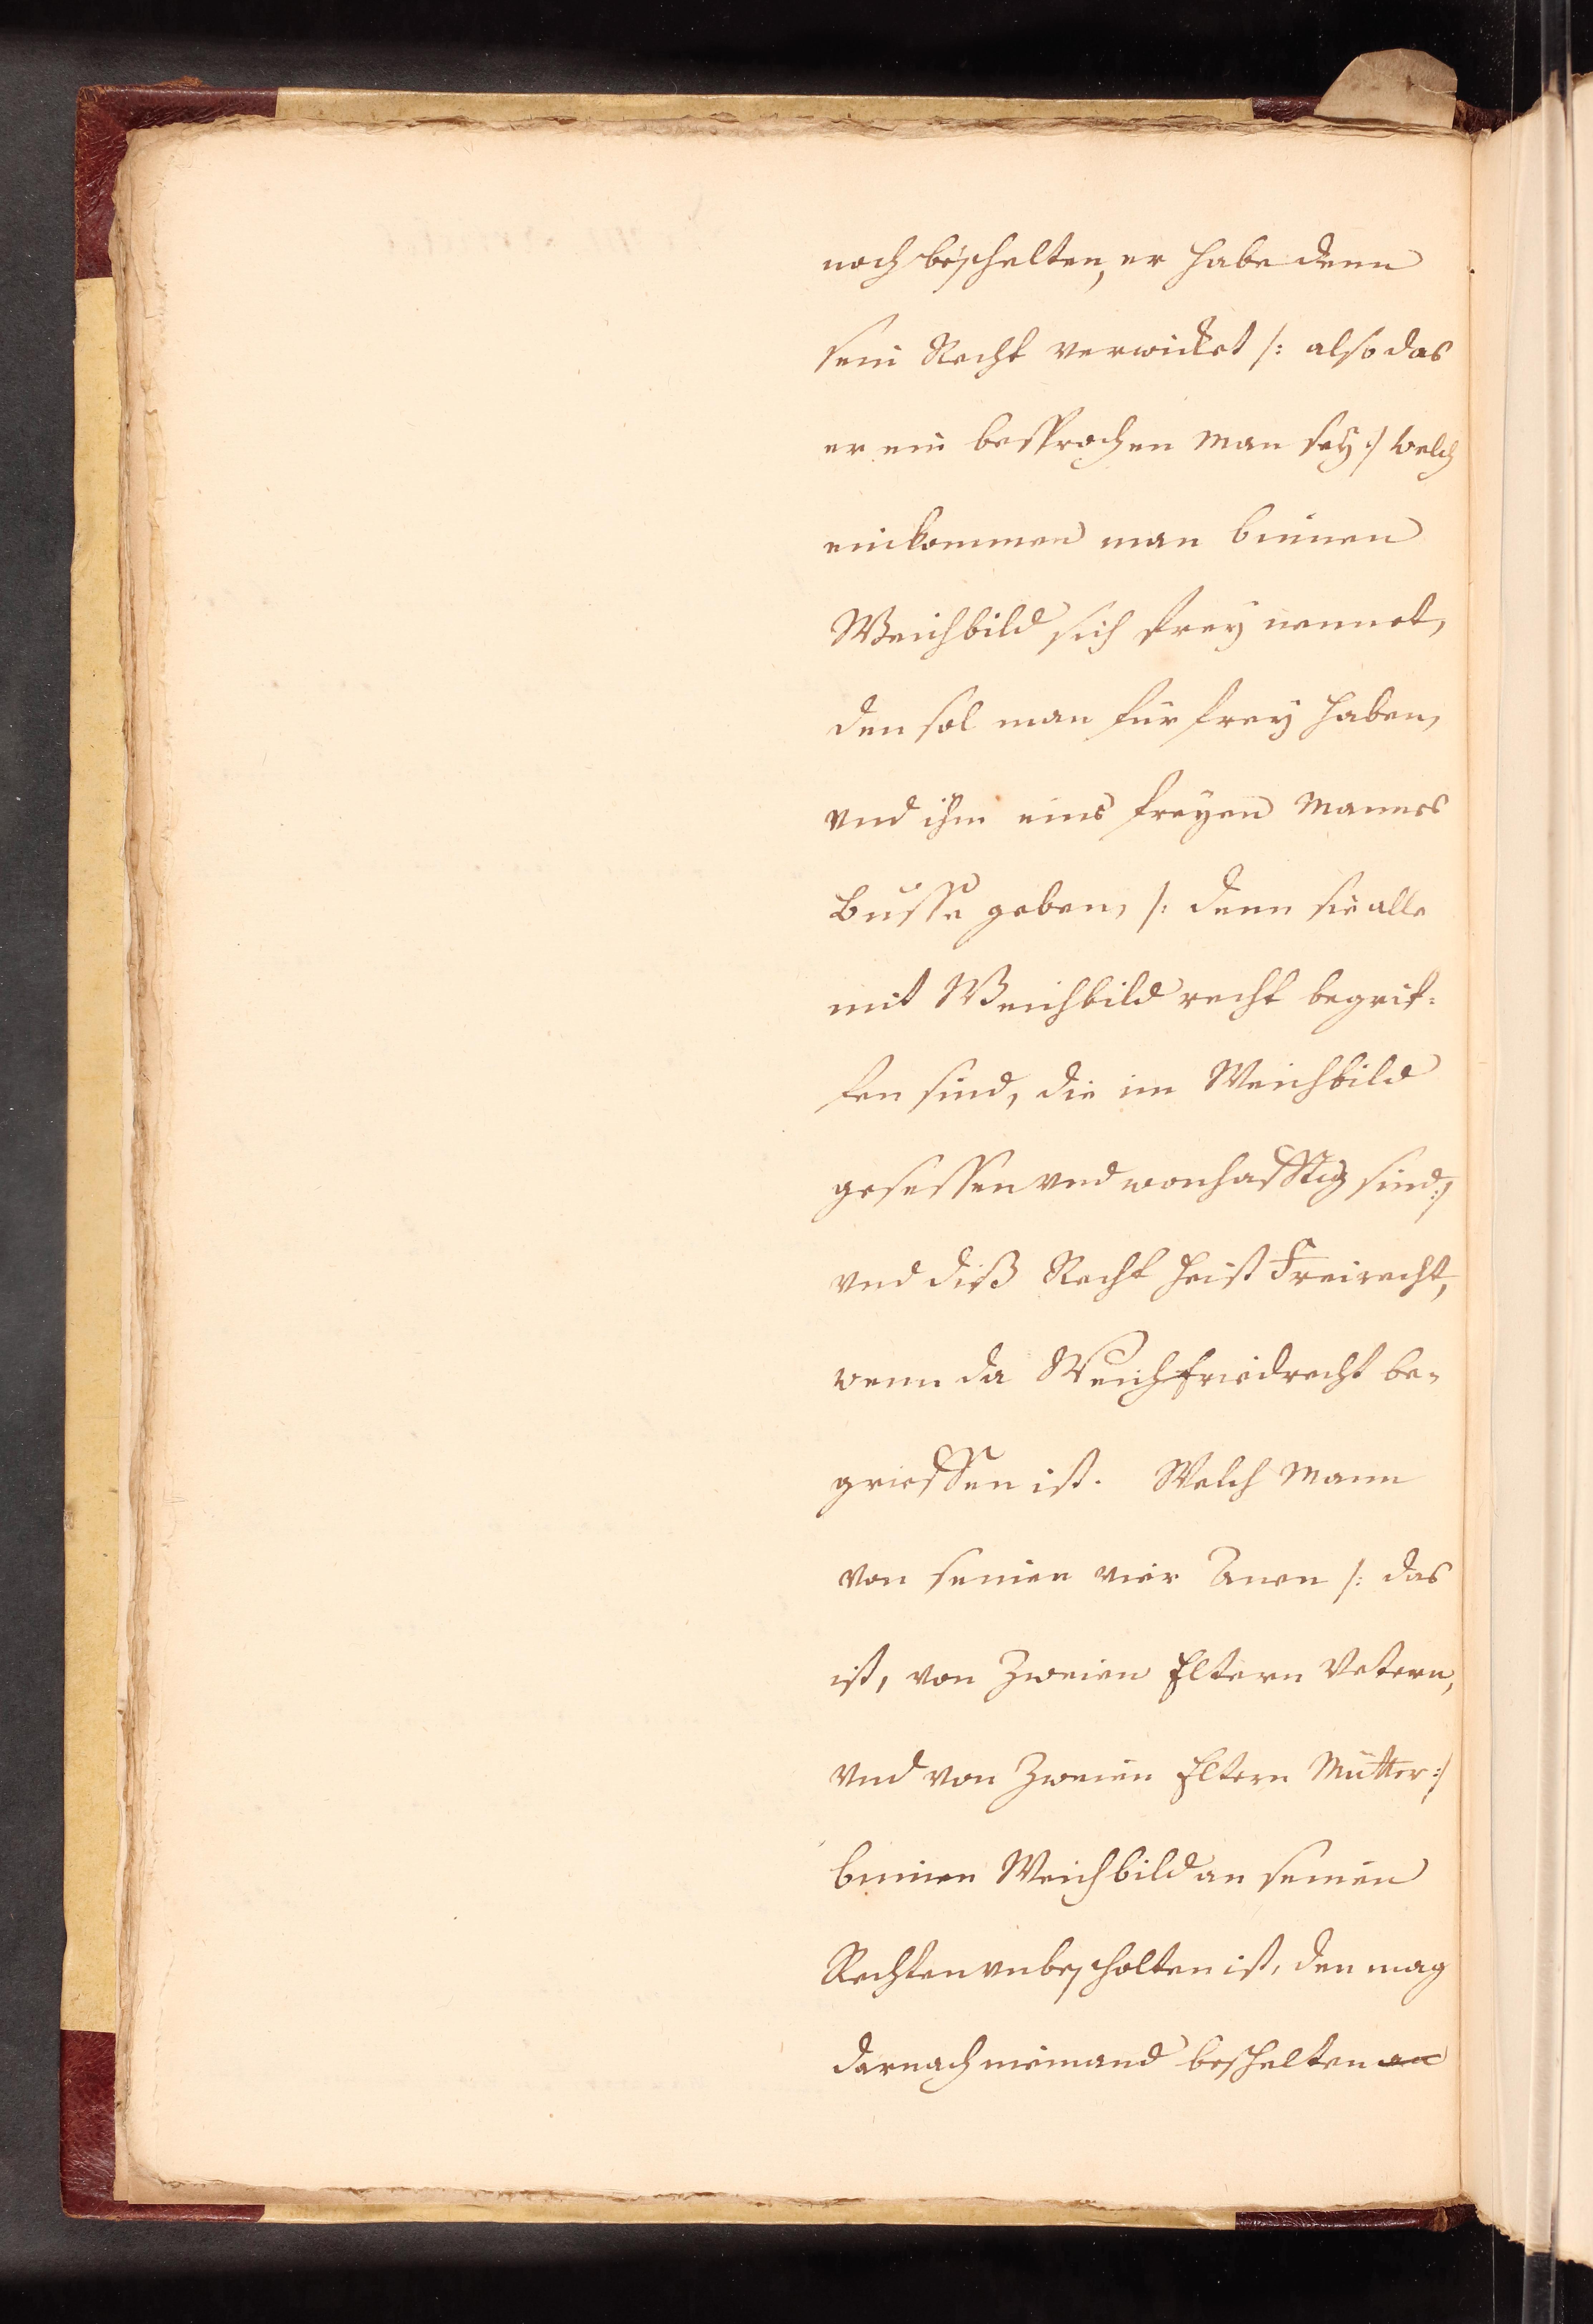 noch beschelten, er habe denn
sein Recht verwircket /: also das
er ein besprochen Man sey :/ welch
einkommen man binnen
Weichbild sich frey nennet,
den sol man für frey haben,
vnd ihm eins freyen Mannes
Busse geben, /: denn sie alle
mit Weichbild recht begrif=
fen sind, die im Weichbild
gesessen vnd wonhafftig sind :/
vnd diß Recht heist Freirecht,
wenn da Weichfriedrecht be=
grieffen ist. Welch Mann
von seinen vier Anen /: das
ist, von Zweien Eltern Vetern,
vnd von Zweien Eltern Mütter :/
binnen Weichbild an seinen
Rechten vnbescholten ist, den mag
darnach niemand beschelten an